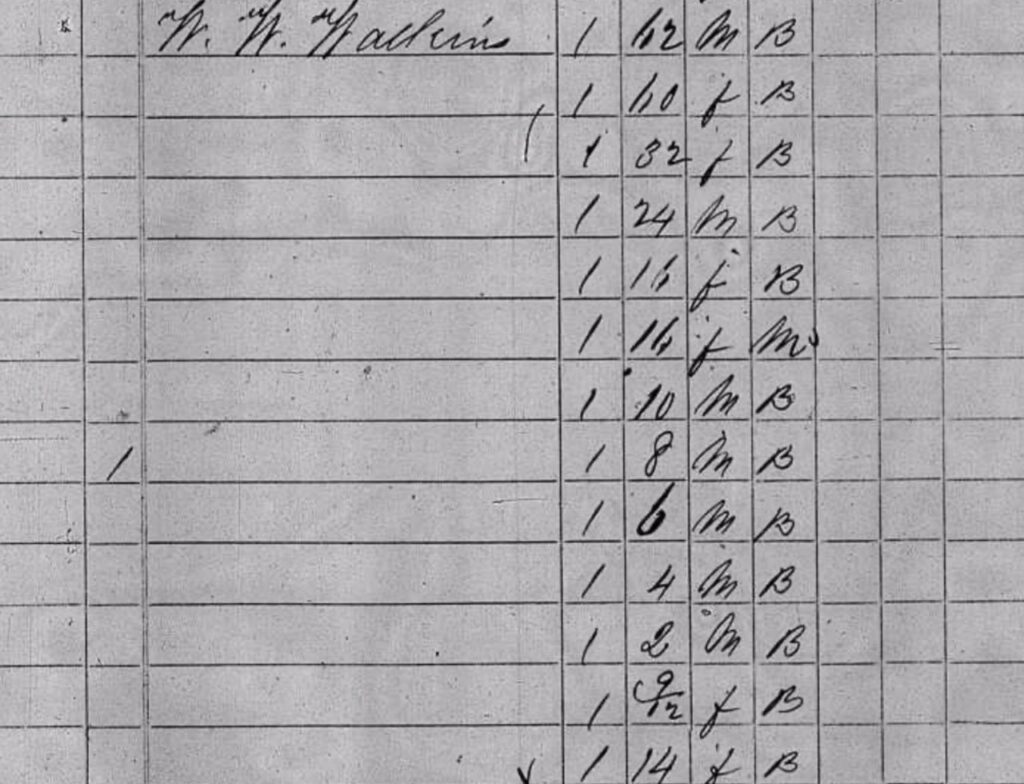 W. W. Watkins 1 62 M B
1 60 f B
1 32 f B
1 24 M B
1 16 f B
1 16 f M
1 10 M B
1 1 8 M B
1 6 M B
1 4 M B
1 2 M B
1 9/12 f B
1 14 f B